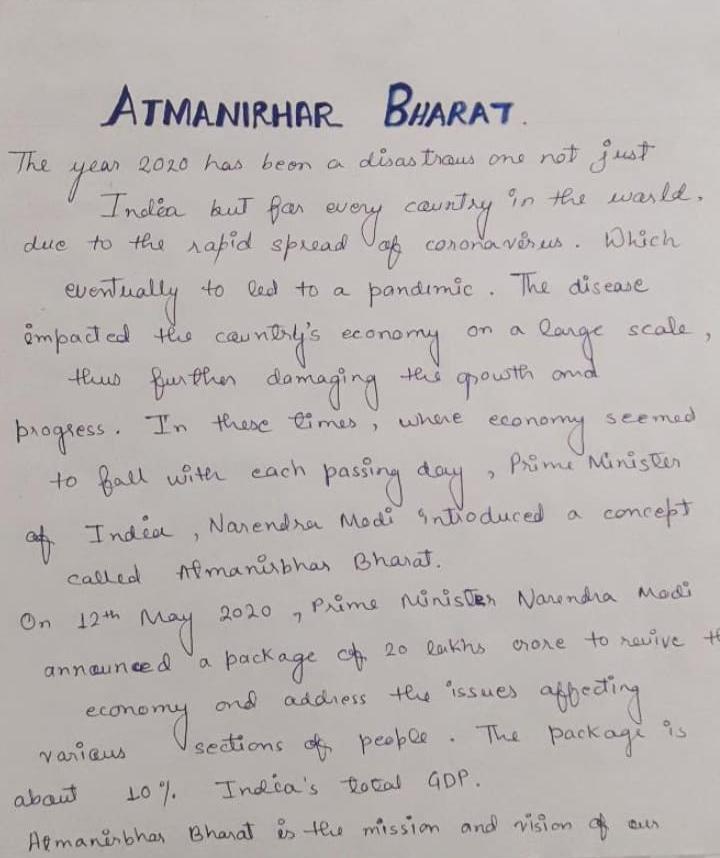 ATMANIRHAR BHARAT.
The year 2020 has been a disastrous one not just
India but for every country in the world,
due to the rapid spread of coronavirus. Which
eventually to led to a pandemic. The disease
impacted the country's economy on a large scale,
thus further damaging the growth and
progress. In these times, where economy seemed
to fall with each passing day, Prime Minister
of India, Narendra Modi introduced a concept
called Atmanirbhar Bharat.
On 12th May 2020, Prime Minister Narendra Modi
announced a package of 20 lakhs crore to revive
economy and address the issues affecting
various sections of people. The package is
about 10% India's total GDP.
Atmanirbhar Bharat is the mission and vision of our